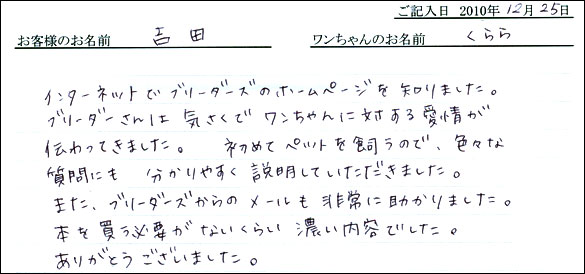 ご記入日 2010年12月25日
お客様のお名前 吉田 ワンちゃんのお名前 くらら
インターネットでブリーダーズのホームページを知りました。
ブリーダーさんは気さくでワンちゃんに対する愛情が
伝わってきました。 初めてペットを飼うので、色々な
質問にも 分かりやすく説明していただきました。
また、ブリーダーズからのメールも非常に助かりました。
本を買う必要がないくらい 濃い内容でした。
ありがとうございました。